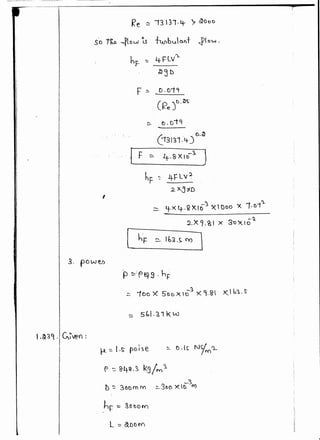 Re = 73137.4 > 2000
so The flow is turbulent flow.
hF = 4FLV²
2gD
F = 0.079
(Re)^0.25
= 0.079
(73137.4)^0.2
F = 4.8×10⁻³
hF = 4FLV²
2×g×D
= 4×4.8×10⁻³×1000 × 7.07²
2×9.81 × 30×10⁻²
hF = 163.5 m
3. power
P = ρqg.hF
= 700 × 500×10⁻³ ×9.81 ×163.5
= 561.37 kw
1.239. Given:
μ = 1.5 poise = 0.15 NS/m²
ρ = 842.3 kg/m³
D = 300mm = 300×10⁻³m
hF = 200m